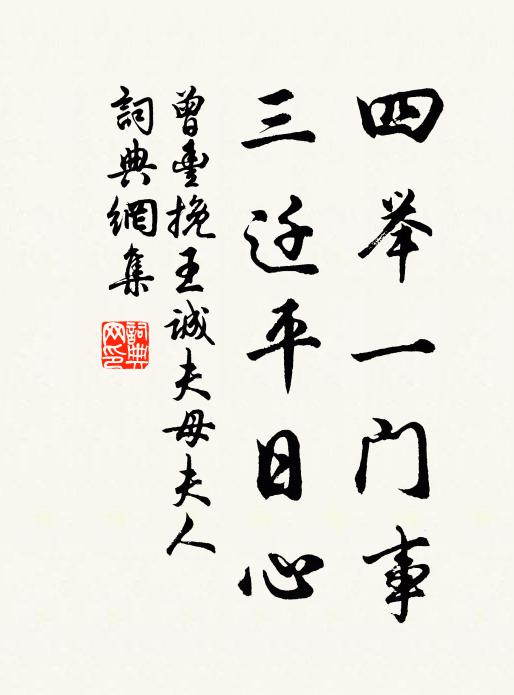 四举一门事
三迁平日心
曾豊挽王誠夫母夫人
詞典網集
詞典
网印